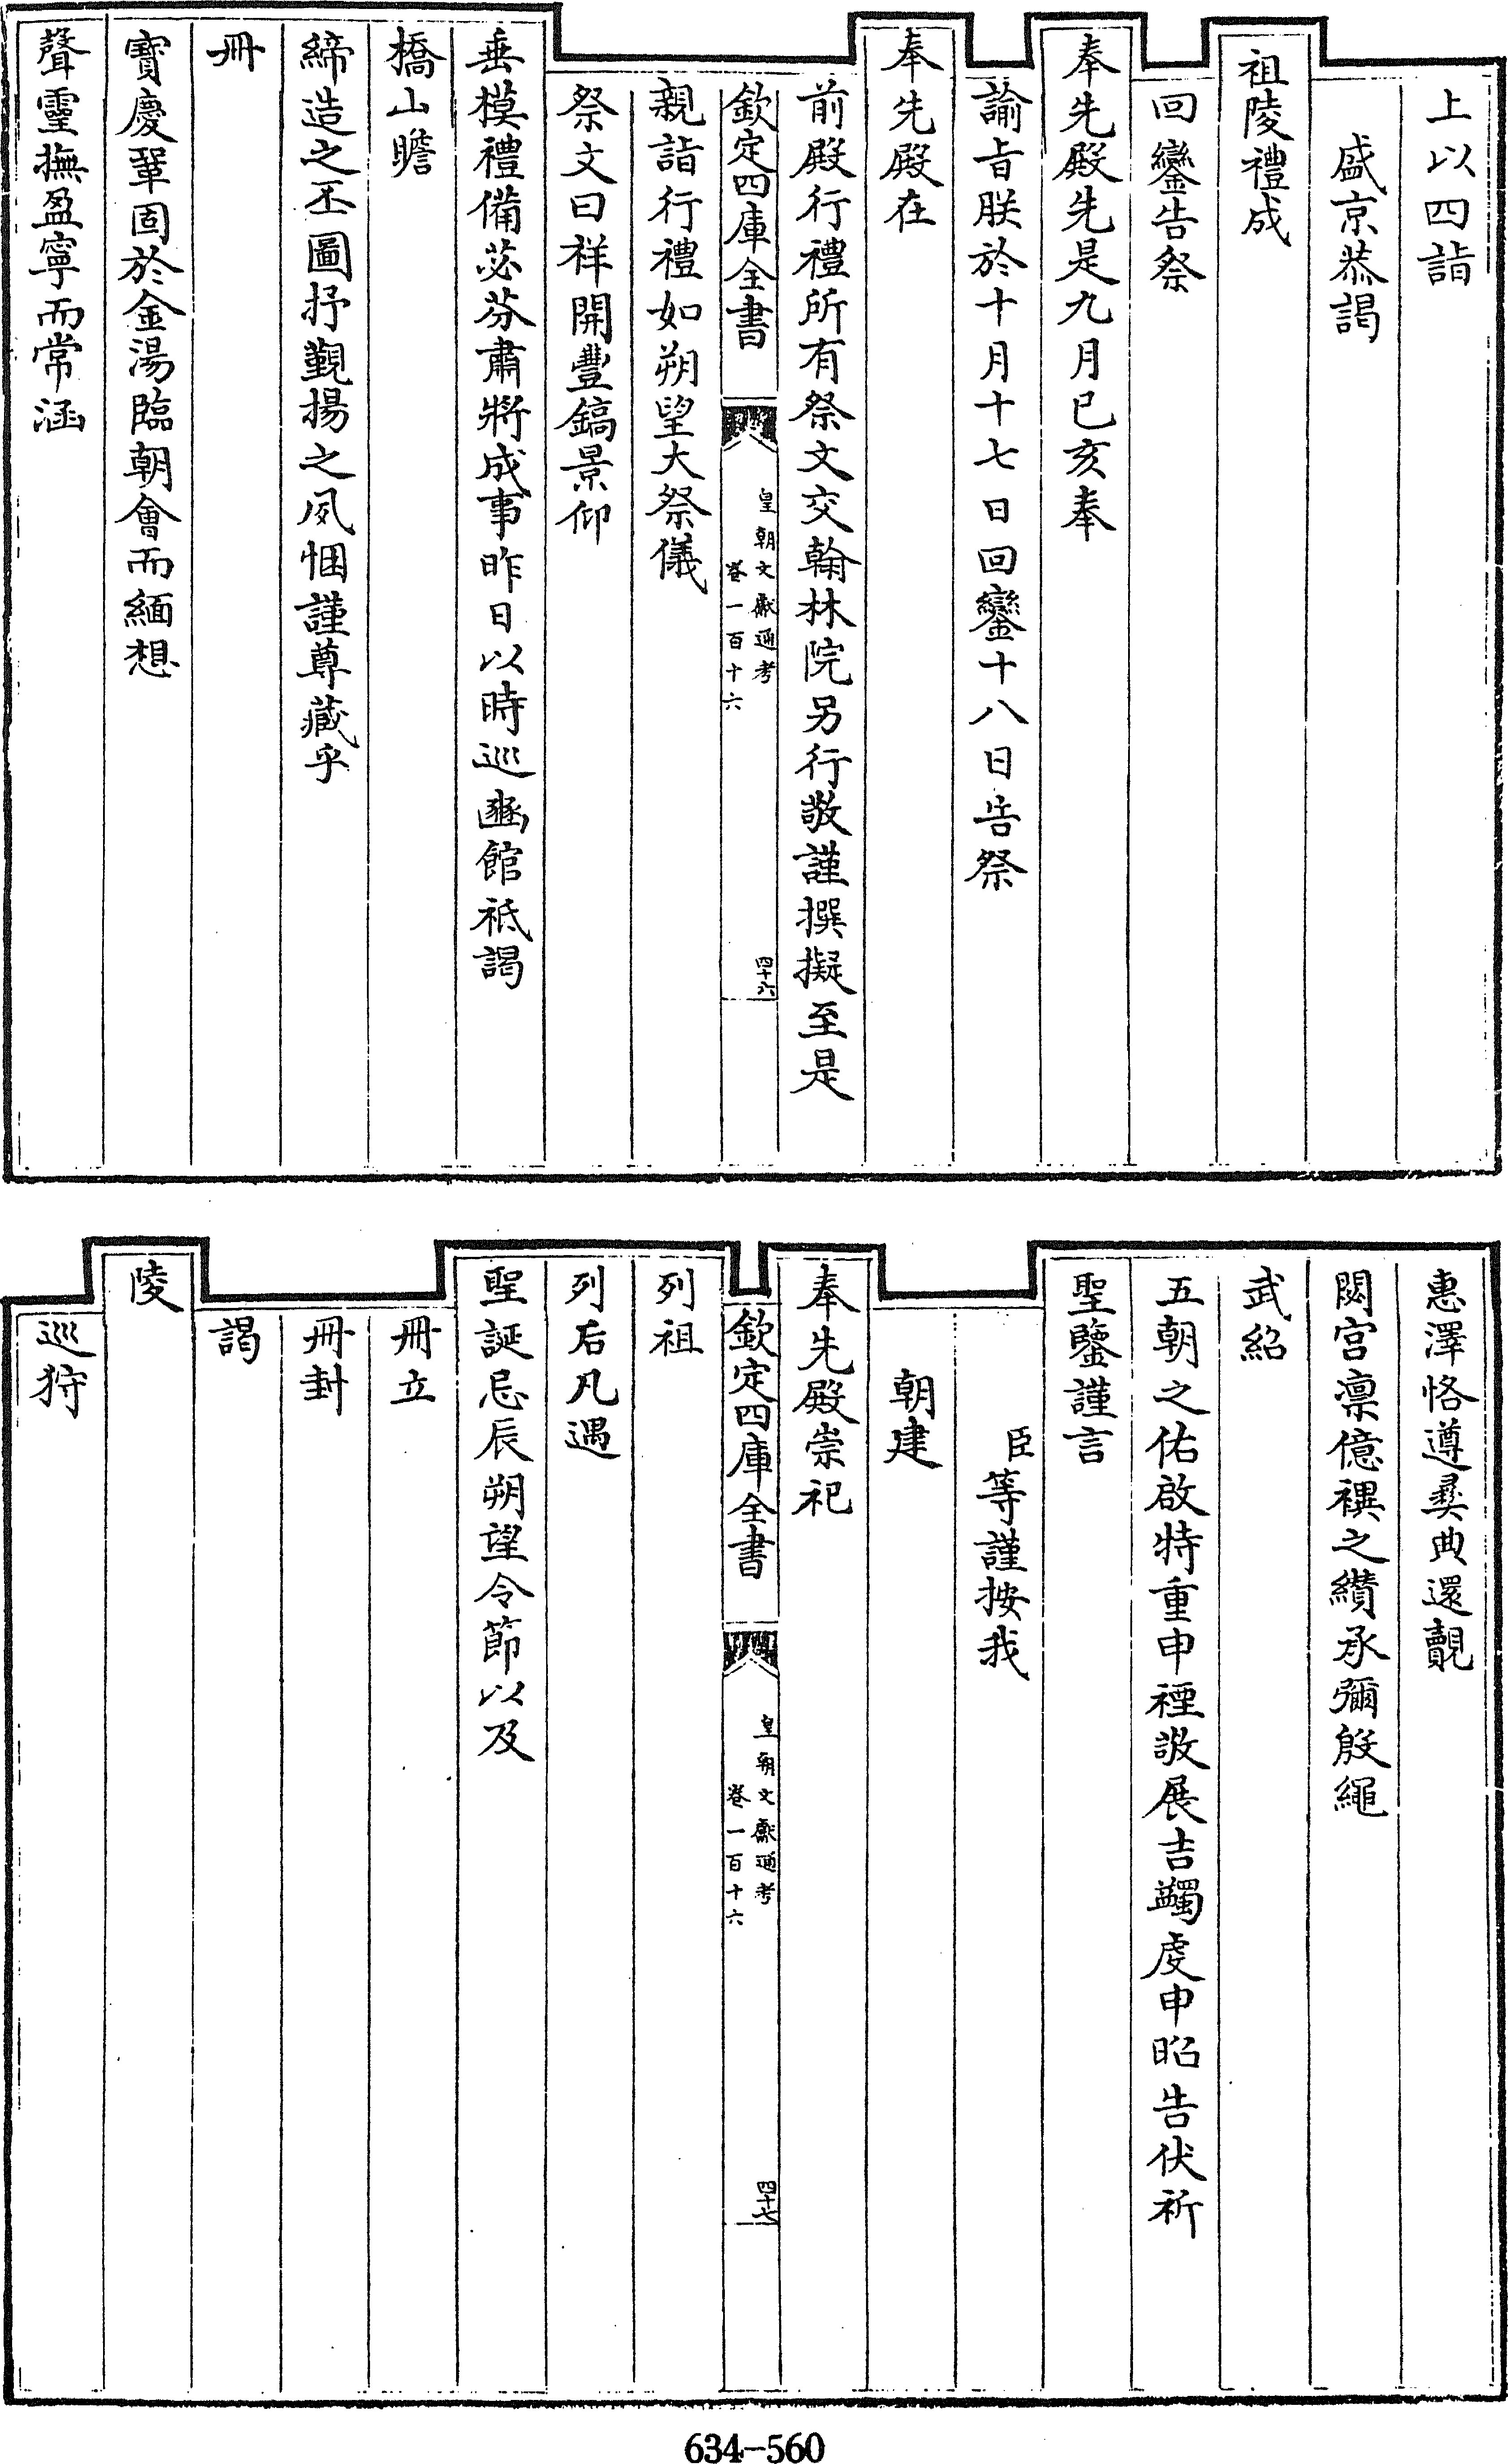 上以四詣
盛京恭謁
祖陵禮成
回鑾告祭
奉先殿先是九月已亥奉
諭旨朕於十月十七日回鑾十八日告祭
奉先殿在
前殿行禮所有祭文交翰林院另行敬謹撰擬至是
欽定四庫全書
皇朝文獻通考
卷一百十六
四十六
親詣行禮如朔望大祭儀
祭文曰祥開豐鎬景仰
垂模禮備苾芬肅將成事昨日以時巡豳館祇謁
橋山瞻
締造之丕圖抒覲揚之夙悃謹尊藏乎
冊
寶慶鞏固於金湯臨朝會而緬想
聲靈撫盈寧而常涵
惠澤恪遵彞典還覿
閟宫凛億禩之纘承彌殷繩
武紹
五朝之佑啟特重申禋敬展吉蠲虔申昭告伏祈
聖鑒謹言
臣等謹按我
朝建
奉先殿崇祀
欽定四庫全書
皇朝文獻通考
卷一百十六
四十七
列祖
列后凡遇
聖誕忌辰朔望令節以及
冊立
冊封
謁
陵
巡狩
634-560